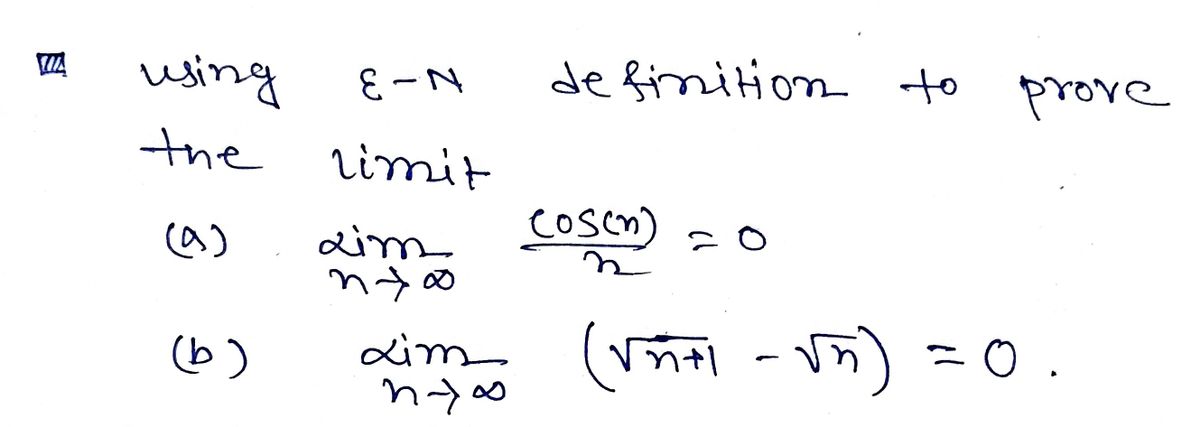 using ε-N definition to prove
the limit
(a) lim n→∞ cos(n)/n = 0
(b) lim n→∞ (√n+1 - √n) = 0.